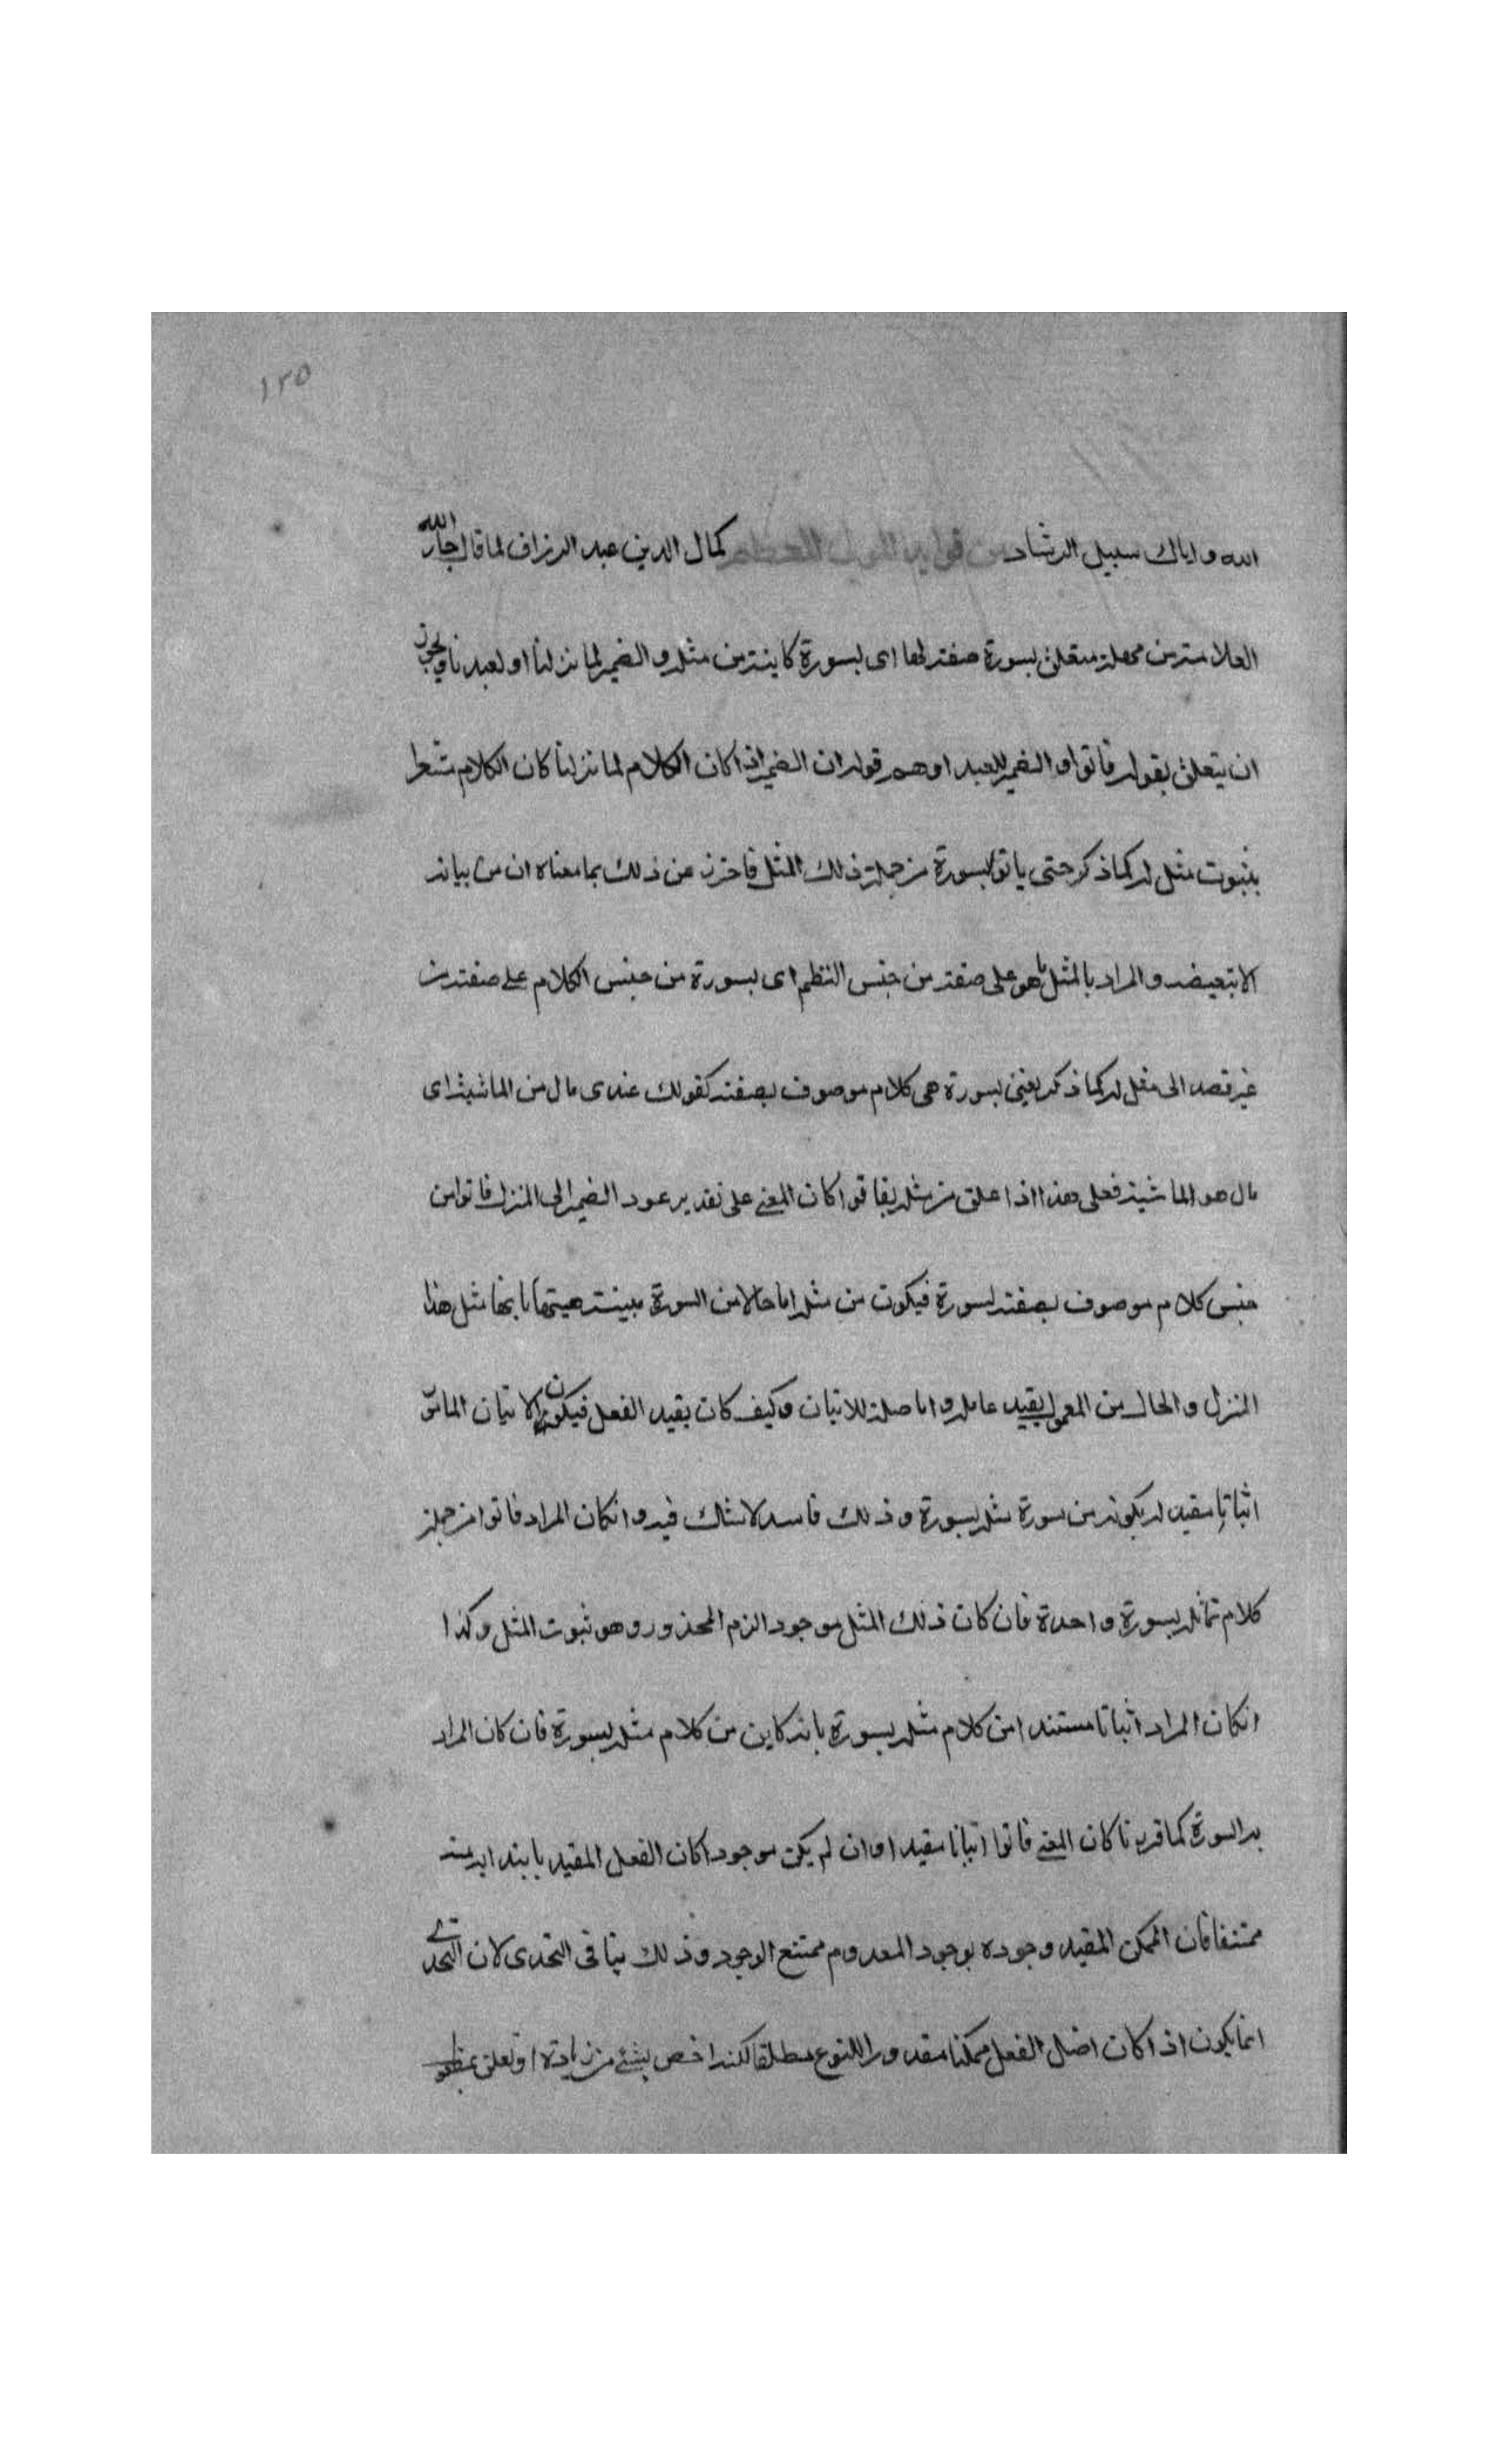 ١٢٥
الله واياك سبيل الرشاد من فوايد المولى كمال الدين عبد الرزاق لما قال جار الله
العلامة من مثله متعلق بسورة صفة لها اى بسورة كاينة من مثله والضمير لما نزلنا او لعبدنا ويجوز
ان يتعلق بقوله فاتوا والضمير للعبد اوهم قوله ان الضمير اذا كان الكلام لما نزلنا كان الكلام مشعرا
بثبوت مثل له كما ذكر حتى ياتوا بسورة من جملة ذلك المثل فاحترز عن ذلك بما معناه ان من بيانه
لا تبعيضه والمراد بالمثل ما هو على صفته من جنس النظم اى بسورة من جنس الكلام على صفته من
غير قصد الى مثل له كما ذكر يعنى بسورة هى كلام موصوف بصفته كقولك عندى مال من الماشية اى
مال هو الماشية فعلى هذا اذا علق من مثله بفاتوا كان المعنى على تقدير عود الضمير الى المنزل فاتوا من
جنس كلام موصوف بصفته بسورة فيكون من مثله اما حالا من السورة مبينة هيئتها بانها مثل هذا
المنزل والحال من المعمول يقيد عامله واما صلة للاتيان وكيف كان يقيد الفعل فيكون الاتيان الماتى
اتيانا مقيد له بكونه من سورة مثله بسورة وذلك فاسد لا شك فيه وانكان المراد فاتوا من جملة
كلام تماثله بسورة واحدة فان كان ذلك المثل موجودا لزم المحذور وهو ثبوت المثل وكذا
انكان المراد اتيانا مستندا من كلام مثله بسورة بانه كاين من كلام مثله بسورة فان كان المراد
به السورة كما قررنا كان المعنى فاتوا اتيانا مقيدا وان لم يكن موجودا كان الفعل المقيد
ممتنعا فان الممكن المقيد وجوده بوجود المعدوم ممتنع الوجود وذلك ينافى التحدى لان التحدى
انما يكون اذا كان اصل الفعل ممكنا مقدورا للنوع مطلقا لكنه اخص بشئ من زيادة او تعلق